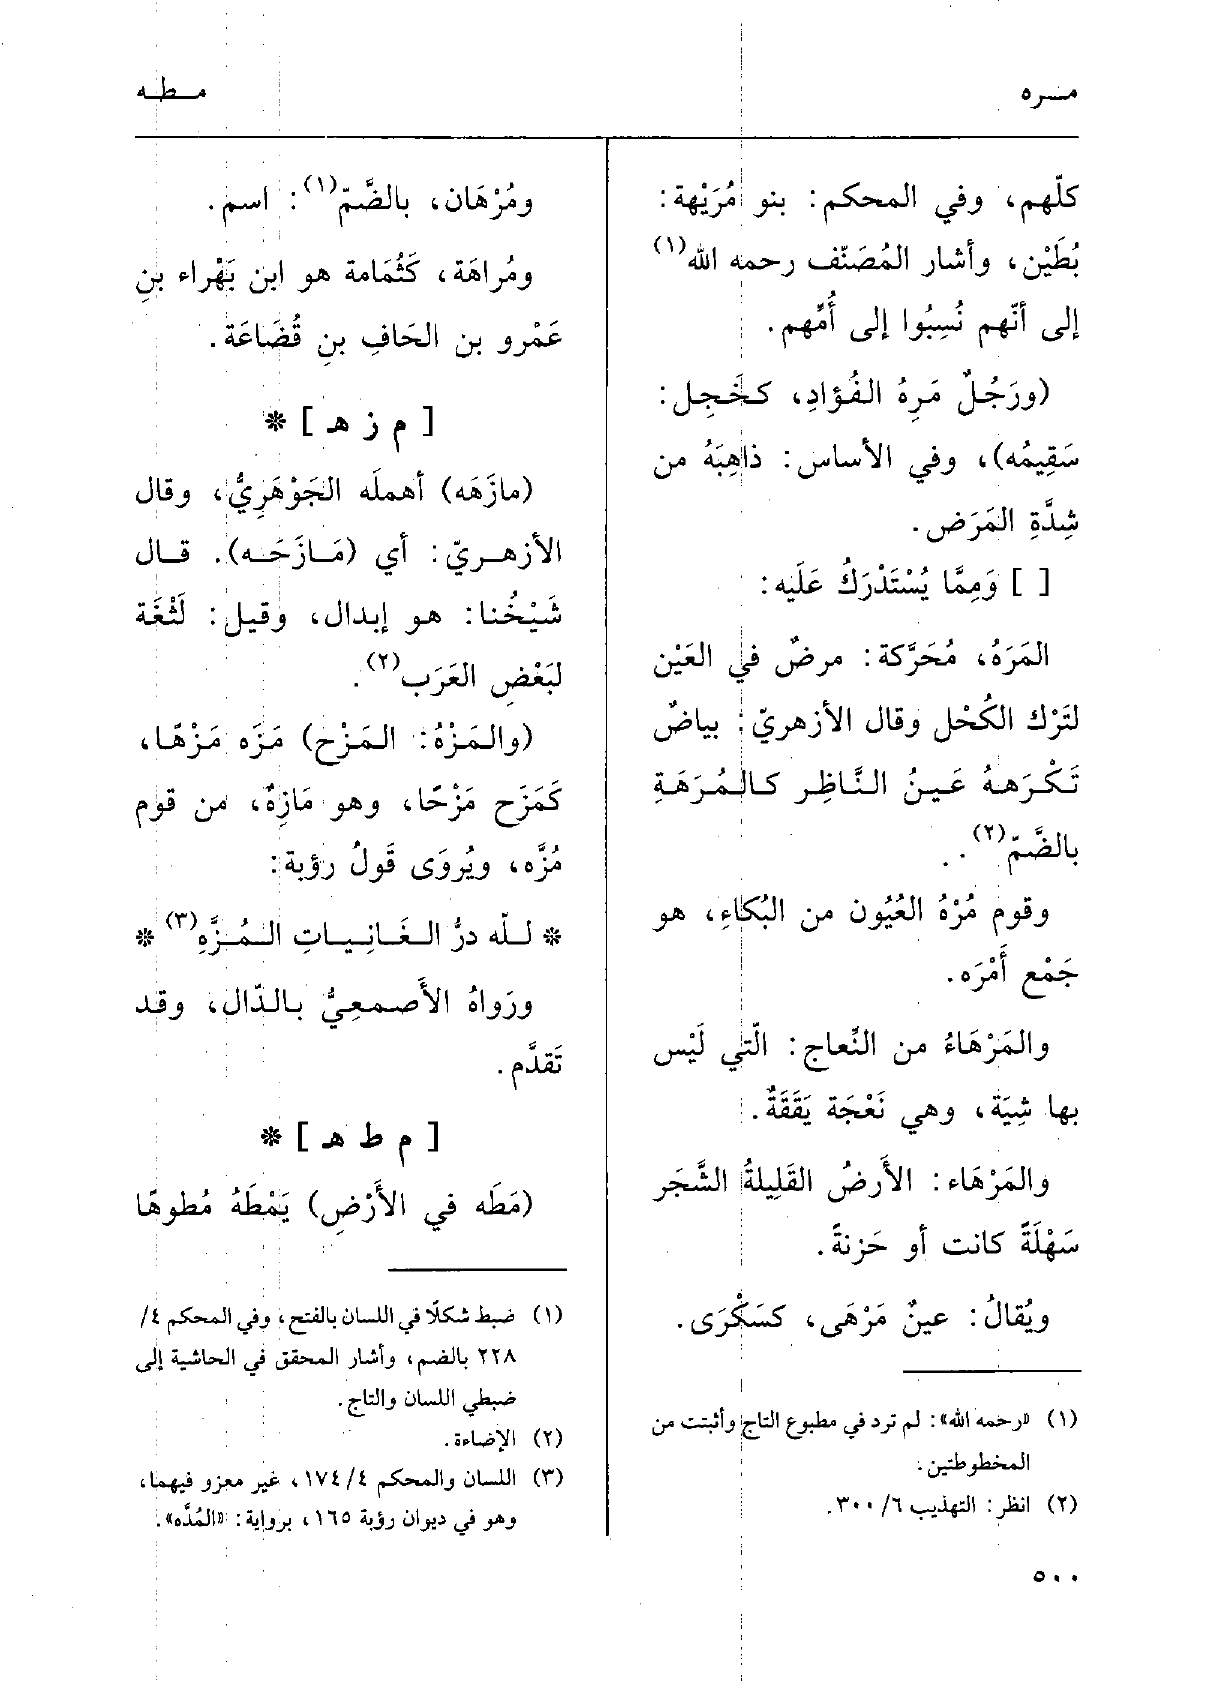 مـره
مـطـه
كلّهم، وفي المحكم: بنو مُرَيْهة:
بُطَيْن، وأشار المُصَنّف رحمه الله(١)
إلى أنّهم نُسِبُوا إلى أُمِّهم.
(ورَجُلٌ مَرِهُ الفُؤادِ، كخَجِل:
سَقِيمُه)، وفي الأساس: ذاهِبَهُ من
شِدَّةِ المَرَض.
[ ] وَمِمَّا يُسْتَدْرَكُ عَلَيه:
المَرَهُ، مُحَرَّكة: مرضٌ في العَيْن
لتَرْك الكُحْل وقال الأزهريّ: بياضٌ
تَكْرَهـهُ عَـيـنُ النَّاظِر كـالـمُـرَهَةِ
بالضَّمّ(٢). .
وقوم مُرْهُ العُيُون من البُكاءِ، هو
جَمْع أَمْرَه.
والمَرْهَاءُ من النِّعاج: الّتي لَيْس
بها شِيَة، وهي نَعْجَة يَقَقَةٌ.
والمَرْهَاء: الأَرضُ القَلِيلةُ الشَّجَر
سَهْلَةً كانت أو حَزنةً.
ويُقالُ: عينٌ مَرْهَى، كسَكْرَى.
(١) «رحمه الله»: لم ترد في مطبوع التاج وأثبتت من
المخطوطتين.
(٢) انظر: التهذيب ٦/ ٣٠٠.
ومُرْهَان، بالضَّمّ(١): اسم.
ومُراهَة، كَثُمَامة هو ابن بَهْراء بنِ
عَمْرو بن الحَافِ بنِ قُضَاعَة.
[ م ز هـ ] *
(مازَهَه) أهملَه الجَوْهَرِيُّ، وقال
الأزهـريّ: أي (مَـازَحَـه). قـال
شَيْخُنا: هو إبدال، وقيل: لَثْغَة
لبَعْضِ العَرَب(٢).
(والـمَـزْهُ: الـمَـزْح) مَـزَه مَـزْهًـا،
كَمَزَح مَزْحًا، وهو مَازِهٌ، من قوم
مُزَّه، ويُروَى قَولُ رؤبة:
* لـلّه درُّ الـغَـانِـيـاتِ الـمُـزَّهِ(٣) *
ورَواهُ الأَصـمـعِيُّ بـالـدّال، وقـد
تَقدَّم.
[ م ط هـ ] *
(مَطَه في الأَرْضِ) يَمْطَهُ مُطوهًا
(١) ضبط شكلًا في اللسان بالفتح، وفي المحكم ٤/
٢٢٨ بالضم، وأشار المحقق في الحاشية إلى
ضبطي اللسان والتاج.
(٢) الإضاءة.
(٣) اللسان والمحكم ٤/ ١٧٤، غير معزو فيهما،
وهو في ديوان رؤبة ١٦٥، برواية: «المُدَّه».
٥٠٠